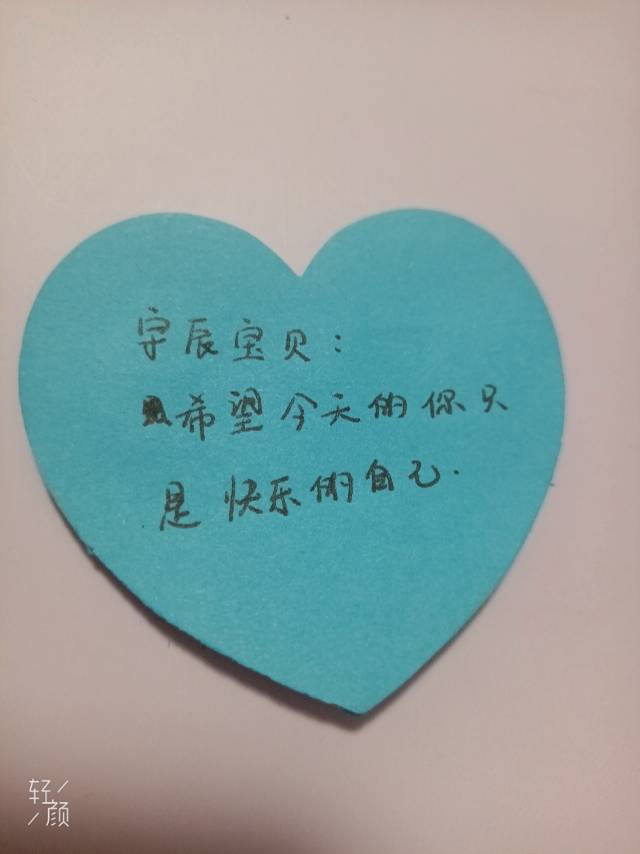 宇辰宝贝：
希望今天的你只
是快乐的自己.
轻
颜